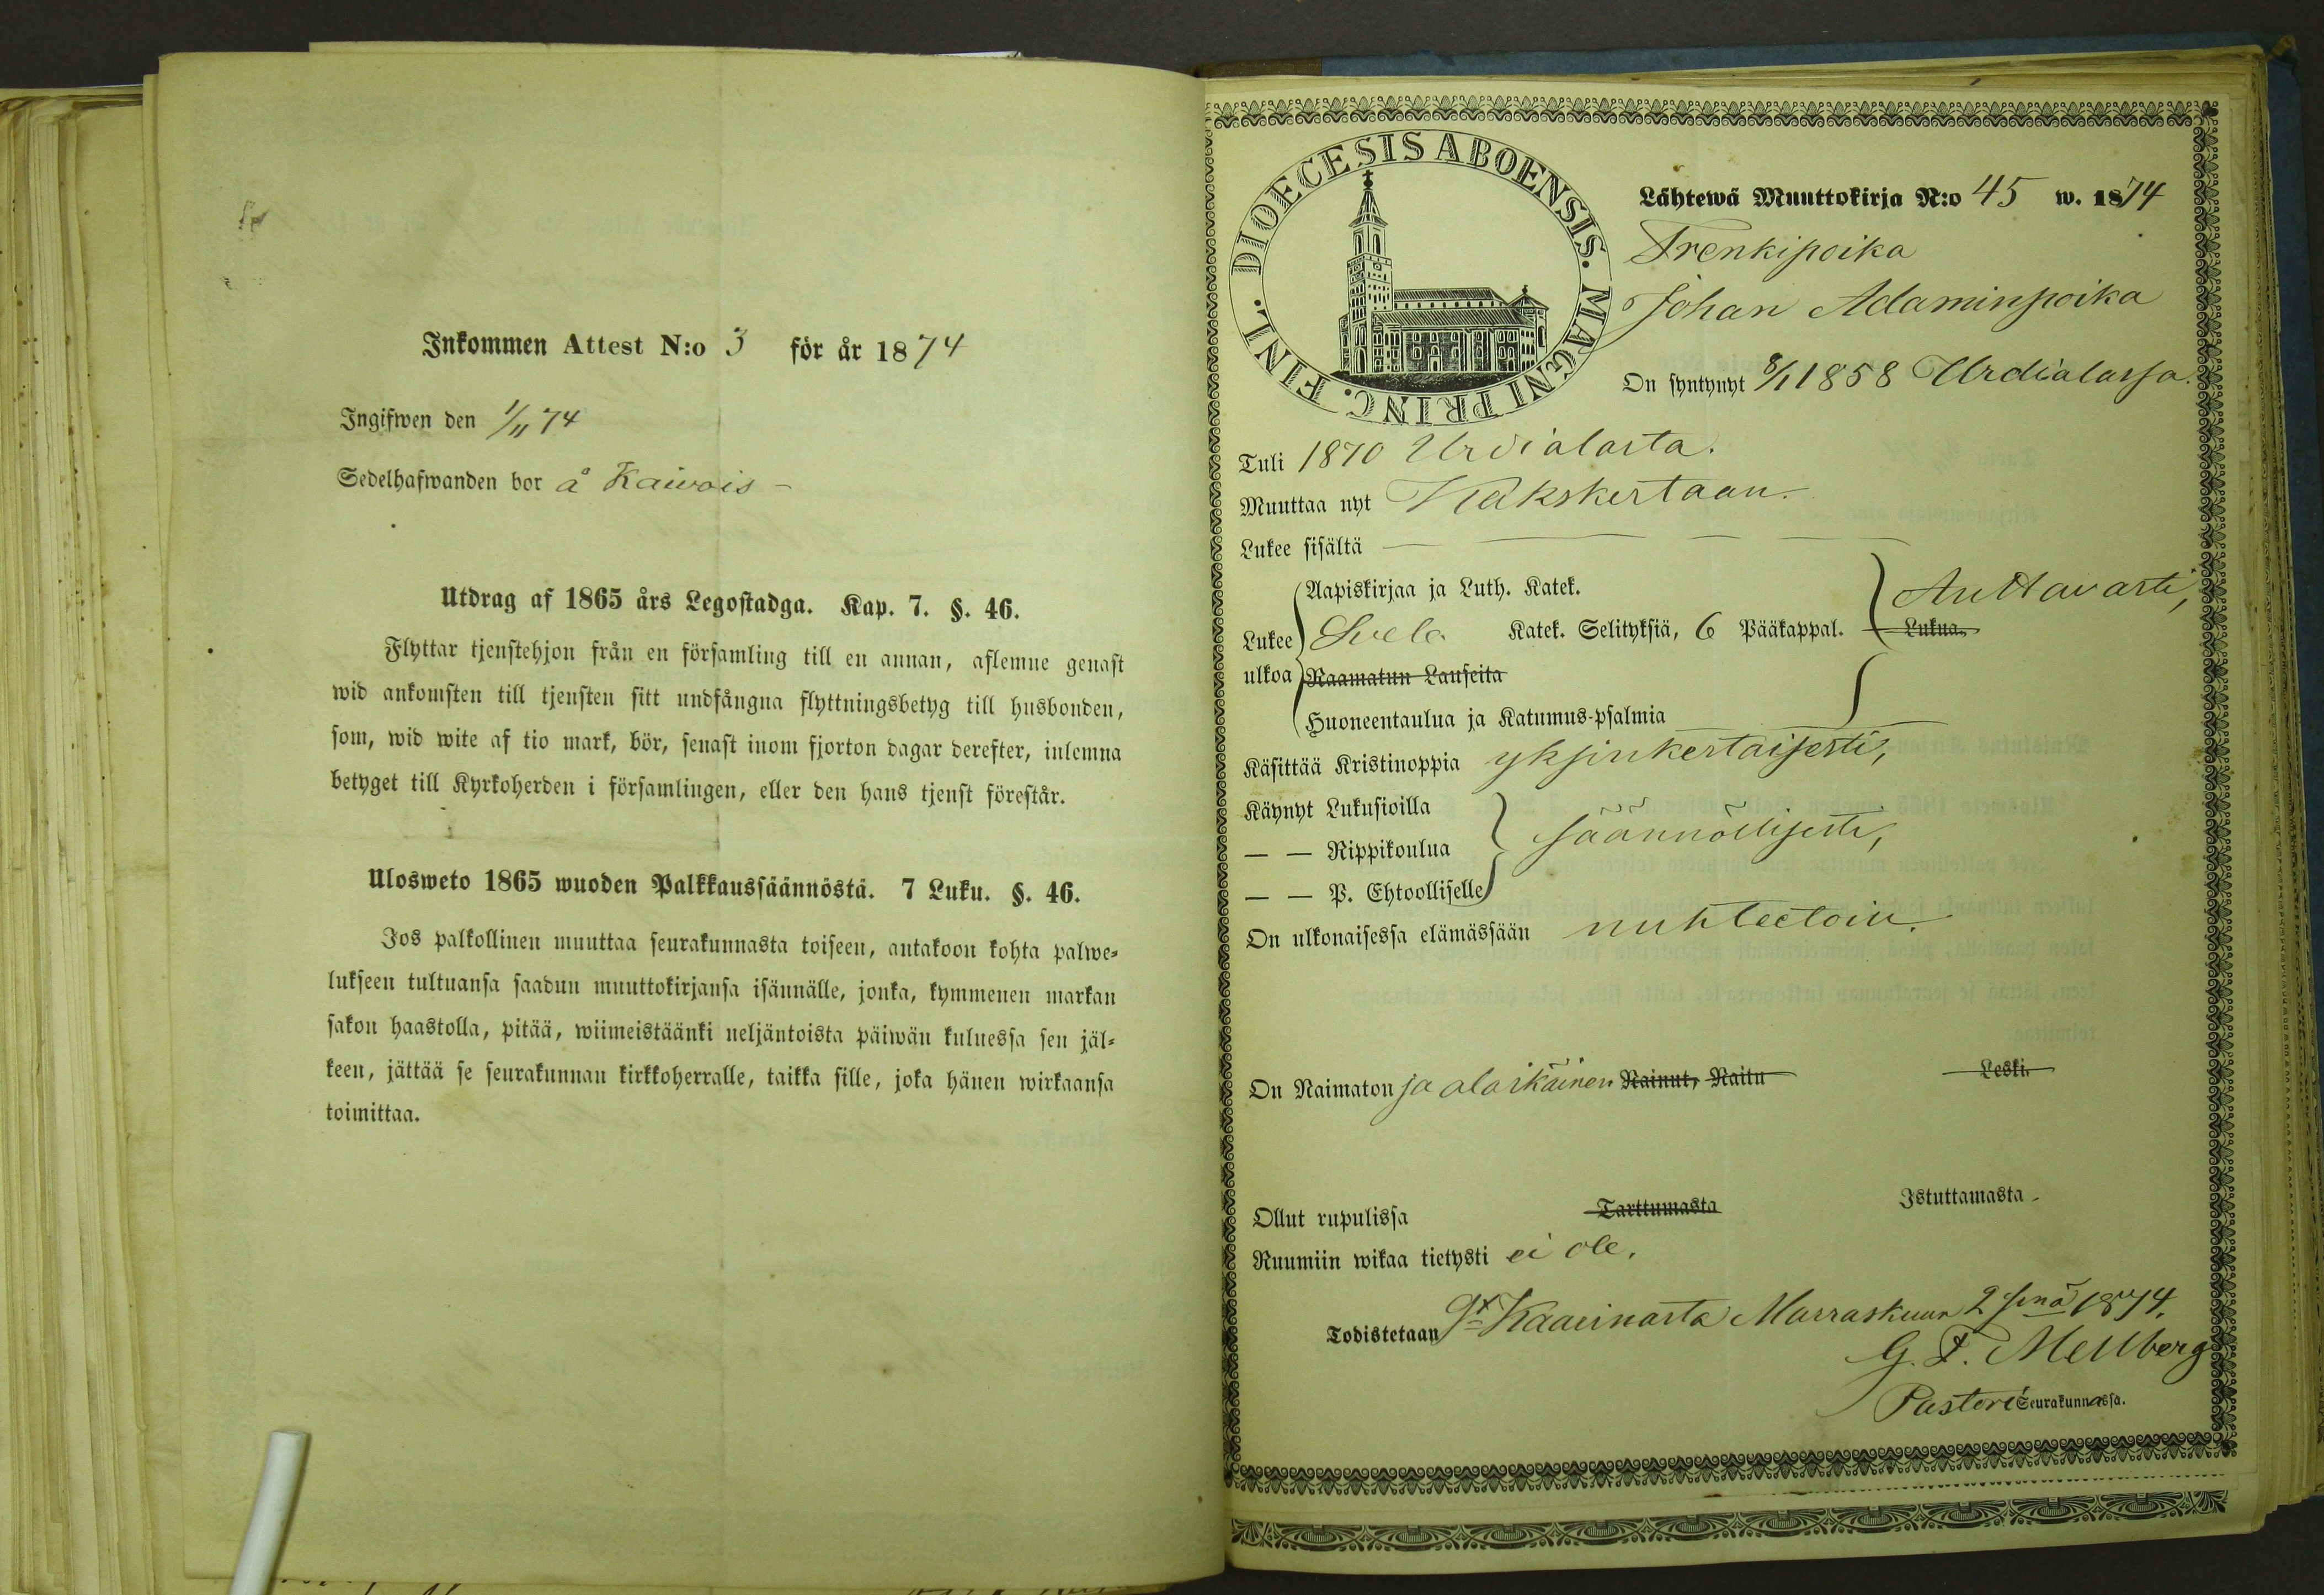 Inkommen Attest N:o 3 för år 1874
Ingifwen den 1/11 74
Sedelhafwanden bor å Kaivois -
Utdrag af 1865 års Legostadga. Kap. 7. §. 46.
Flyttar tjenstehjon från en församling till en annan, aflemne genast
wid ankomsten till tjensten sitt undfångna flyttningsbetyg till husbonden,
som, wid wite af tio mark, bör, senast inom fjorton dagar derefter, inlemna
betyget till Kyrkoherden i församlingen, eller den hans tjenst förestår.
Ulosweto 1865 wuoden Palkkaussäännöstä. 7 Luku. §. 46.
Jos palkollinen muuttaa seurakunnasta toiseen, antakoon kohta palwe-
lukseen tultuansa saadun muuttokirjansa isännälle, jonka, kymmenen markan
sakon haastolla, pitää, wiimeistäänki neljäntoista päiwän kuluessa sen jäl-
keen, jättää se seurakunnan kirkkoherralle, taikka sille, joka hänen wirkaansa
toimittaa.
DIOECESIS ABOENSIS. MAGNI PRINC. FINL.
Lähtewä Muuttokirja N:o 45 w. 1874
Trenkipoika
Johan Adaminpoika
On syntynyt 8/1 1858 Urdialassa.
Tuli 1870 Urdialasta.
Muuttaa nyt Kakskertaan.
Lukee sisältä — — — —
Aapiskirjaa ja Luth. Katek.
Auttavasti,
Lukee Svela Katek. Selityksiä, 6 Pääkappal. Lukua.
ulkoa Raamatun Lauseita
Huoneentaulua ja Katumus-psalmia
Käsittää Kristinoppia yksinkertaisesti,
Käynyt Lukusioilla
— — Rippikoulua säännöllisesti,
— — P. Ehtoolliselle
On ulkonaisessa elämässään nuhteetoin.
On Naimaton ja alaikäinen Nainut, Naitu Leski.
Ollut rupulissa Tarttumasta Istuttamasta.
Ruumiin wikaa tietysti ei ole.
Todistetaan Kaarinasta Marraskuun 2 sinä 1874.
G. F. Mellberg
Pastori Seurakunnassa.